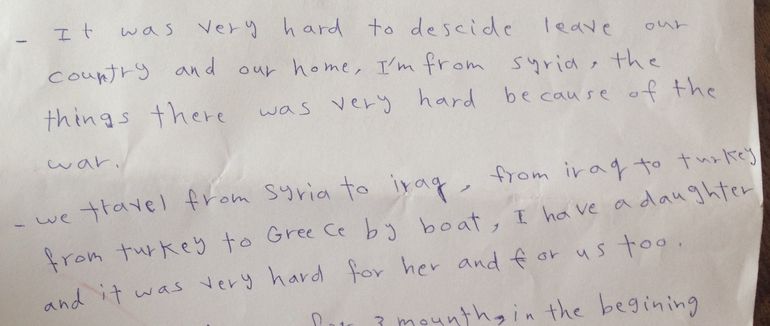 - It was very hard to descide leave our
country and our home, I'm from syria, the
things there was very hard because of the
war.
- we travel from syria to iraq, from iraq to turkey
from turkey to Greece by boat, I have a daughter
and it was very hard for her and for us too.
3 mounth, in the begining